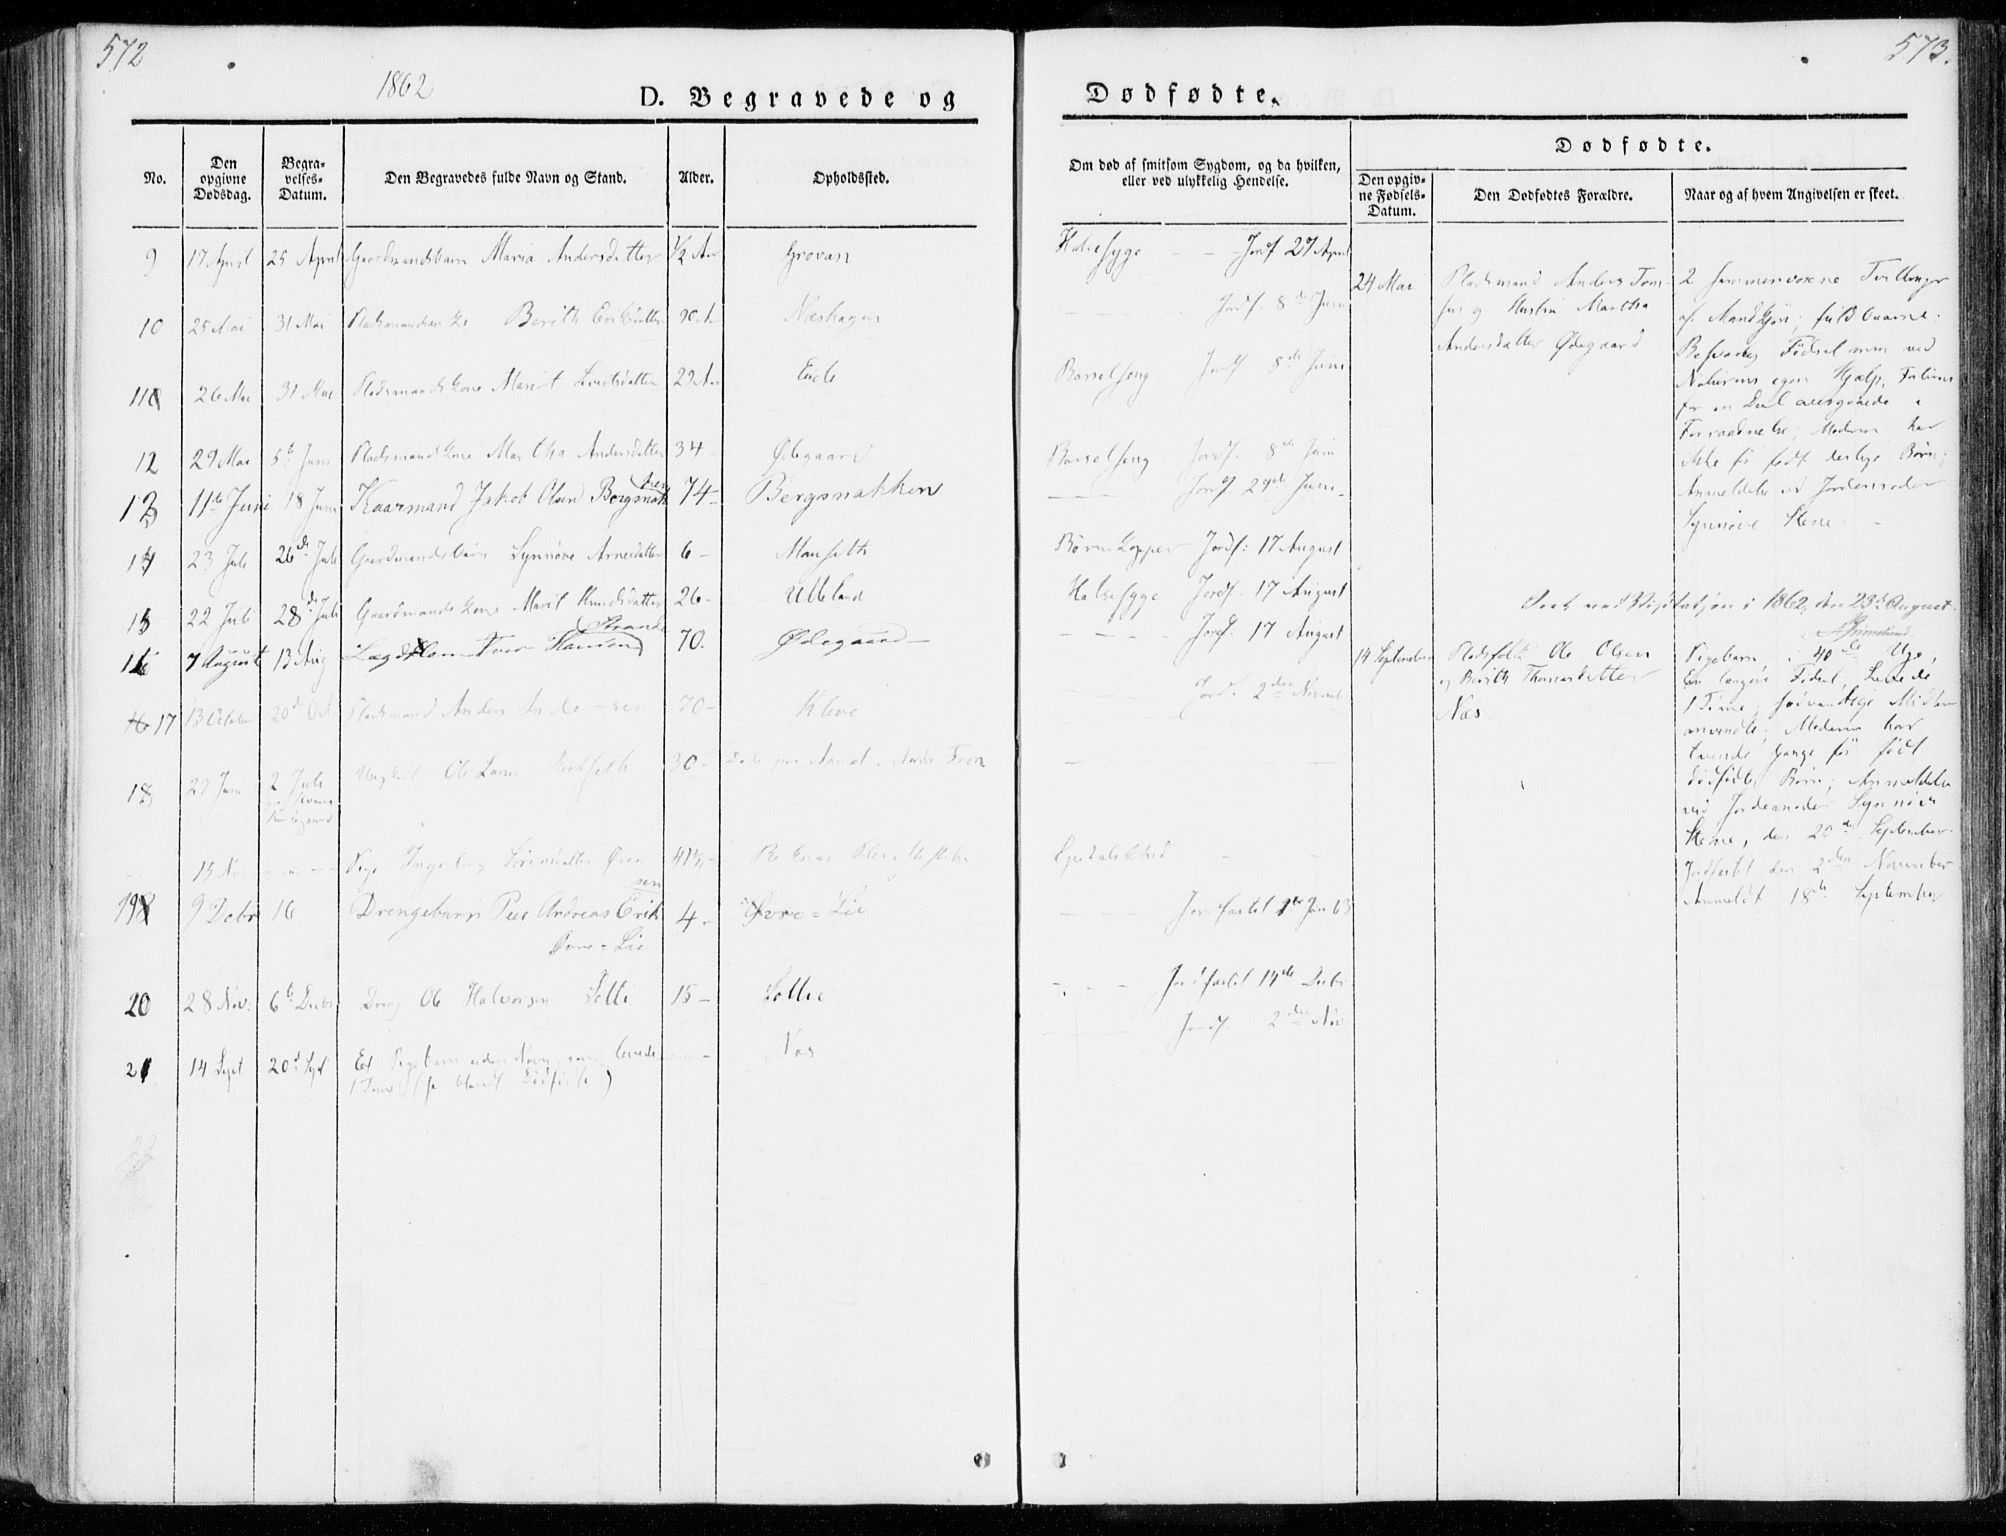 572
1862
D. Begravede og
No.
Den opgivne Dødsdag.
Begravelses-Datum.
Den Begravedes fulde Navn og Stand.
Alder.
Opholdssted.
9 17 April 25 April Gaardmandsbarn Maria Andersdatter 1/2 Aar Grovan
10 25 Mai 31 Mai Berith Eriksdatter 90 Neshagen
11 26 Mai 31 Mai Pladsmandskone Marit 29 Aar Eide
12 29 Mai 5te Juni Pladsmandskone Martha Andersdatter 34 - Ødegaard
13 11te Juni 18 Juni Kaarmand Jakob Olsen Bergsnakken 74 - Bergsnakken
14 23 Juli 26de Juli Gaardmandsbarn Synnøve Arnesdatter 6 - Monseth
15 22 Juli 28de Juli Gaardmandskone Marit Knudsdatter 26 - Ulleland
16 7 August 13 Aug Hansen Strande 70. Ødegaard
17 13 October 20de Oct Pladsmand Anders Andersen 70 - Kleve
18 27 Juni 2 Juli Ungkarl Ole Larsen 30 - Fron
15 Nov - - - Pige Ingeborg 41 1/2 -
19 9 Decbr 16 Drengebarn Peer Andreas Eriksen 4 - Øvre=Lie
Øvre=Lie
20 28 Nov: 6te Decbr Dreng Ole Halvorsen Sølli 15 - Sollie
21 14 Sept 20de Sept Et Pigebarn uden Navn, som levede - Næs
1 Time (se blandt Dødfødte)
22
573.
Dødfødte.
Om død af smitsom Sygdom, og da hvilken, eller ved ulykkelig Hendelse.
Dødfødte.
Den opgivne Fødsels-Datum.
Den Dødfødtes Forældre.
Naar og af hvem Angivelsen er skeet.
Halsesyge - - Jordf 27 April
- - - Jordf. 8de Juni
Barselseng Jordf 8de Juni
Barselseng Jordf. 8de Juni
- - - Jordf 29de Juni
Børnekopper Jordf: 17 August
Halsesyge Jordf. 17 August
- - - Jordf. 17 August
- - - Jordf. 2den Novemb.
Spedalskhed - -
- - - Jordfæstet 1ste Jan 63
- - - Jordfæstet 14de Decbr
Jordf 2den Nov.
24 Mai Pladsmand Anders
og Hustru Martha
Andersdatter Ødegaard
2 sammenvoxne Tvillinger
af Mandkjøn; fuldbaarne.
Besværlig Fødsel men ved
Naturens egen Hjælp,
for en Deel overgaaede i
Forraadnelse; Moderen har
ikke før født deslige Børn;
Anmeldelse ved Jordemoder
Synnøve Stene.
1862, den 23de August.
14 September Pladsfolk Ole Olsen
og Berith Thomasdatter
Næs.
Pigebarn, i 40de Uge;
En langvar Fødsel; Levede
1 Time; sædvanlige Midler
anvendte; Moderen har
tvende Gange før født
dødfødte Børn; Anmeldelse
ved Jordemoder Synnøve
Stene, den 20de September
Jordfæstet den 2den November
Anmeldt 18de September